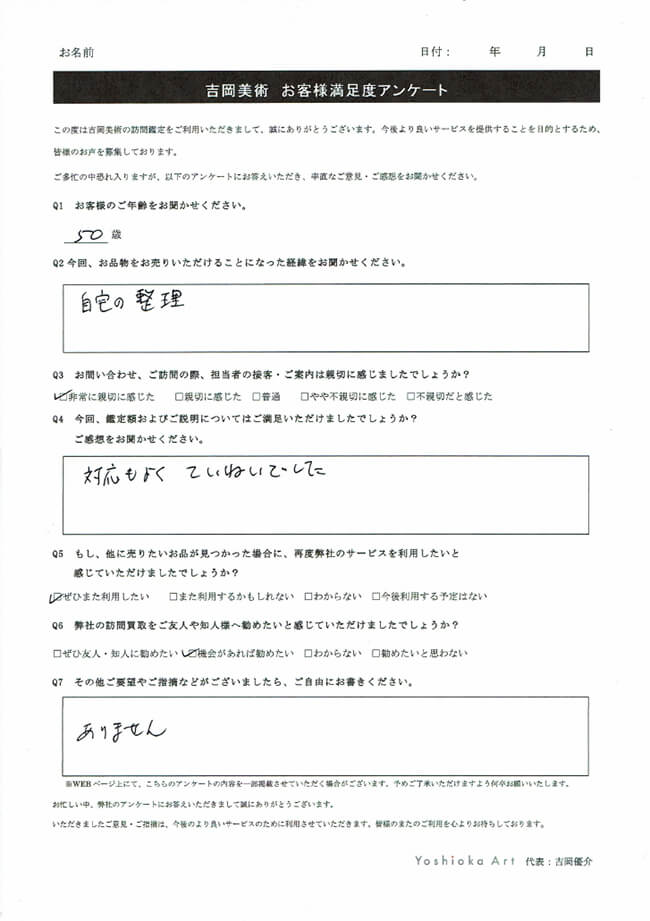 お名前 日付： 年 月 日
吉岡美術 お客様満足度アンケート
この度は吉岡美術の訪問鑑定をご利用いただきまして、誠にありがとうございます。今後より良いサービスを提供することを目的とするため、
皆様のお声を募集しております。
ご多忙の中恐れ入りますが、以下のアンケートにお答えいただき、率直なご意見・ご感想をお聞かせください。
Q1 お客様のご年齢をお聞かせください。
50 歳
Q2 今回、お品物をお売りいただけることになった経緯をお聞かせください。
自宅の整理
Q3 お問い合わせ、ご訪問の際、担当者の接客・ご案内は親切に感じましたでしょうか？
☑非常に親切に感じた □親切に感じた □普通 □やや不親切に感じた □不親切だと感じた
Q4 今回、鑑定額およびご説明についてはご満足いただけましたでしょうか？
ご感想をお聞かせください。
対応もよく ていねいでした
Q5 もし、他に売りたいお品が見つかった場合に、再度弊社のサービスを利用したいと
感じていただけましたでしょうか？
☑ぜひまた利用したい □また利用するかもしれない □わからない □今後利用する予定はない
Q6 弊社の訪問買取をご友人や知人様へ勧めたいと感じていただけましたでしょうか？
□ぜひ友人・知人に勧めたい ☑機会があれば勧めたい □わからない □勧めたいと思わない
Q7 その他ご要望やご指摘などがございましたら、ご自由にお書きください。
ありません
※WEBページ上にて、こちらのアンケートの内容を一部掲載させていただく場合がございます。予めご了承いただけますよう何卒お願いいたします。
お忙しい中、弊社のアンケートにお答えいただきまして誠にありがとうございます。
いただきましたご意見・ご指摘は、今後のより良いサービスのために利用させていただきます。皆様のまたのご利用を心よりお待ちしております。
Yoshioka Art 代表：吉岡優介